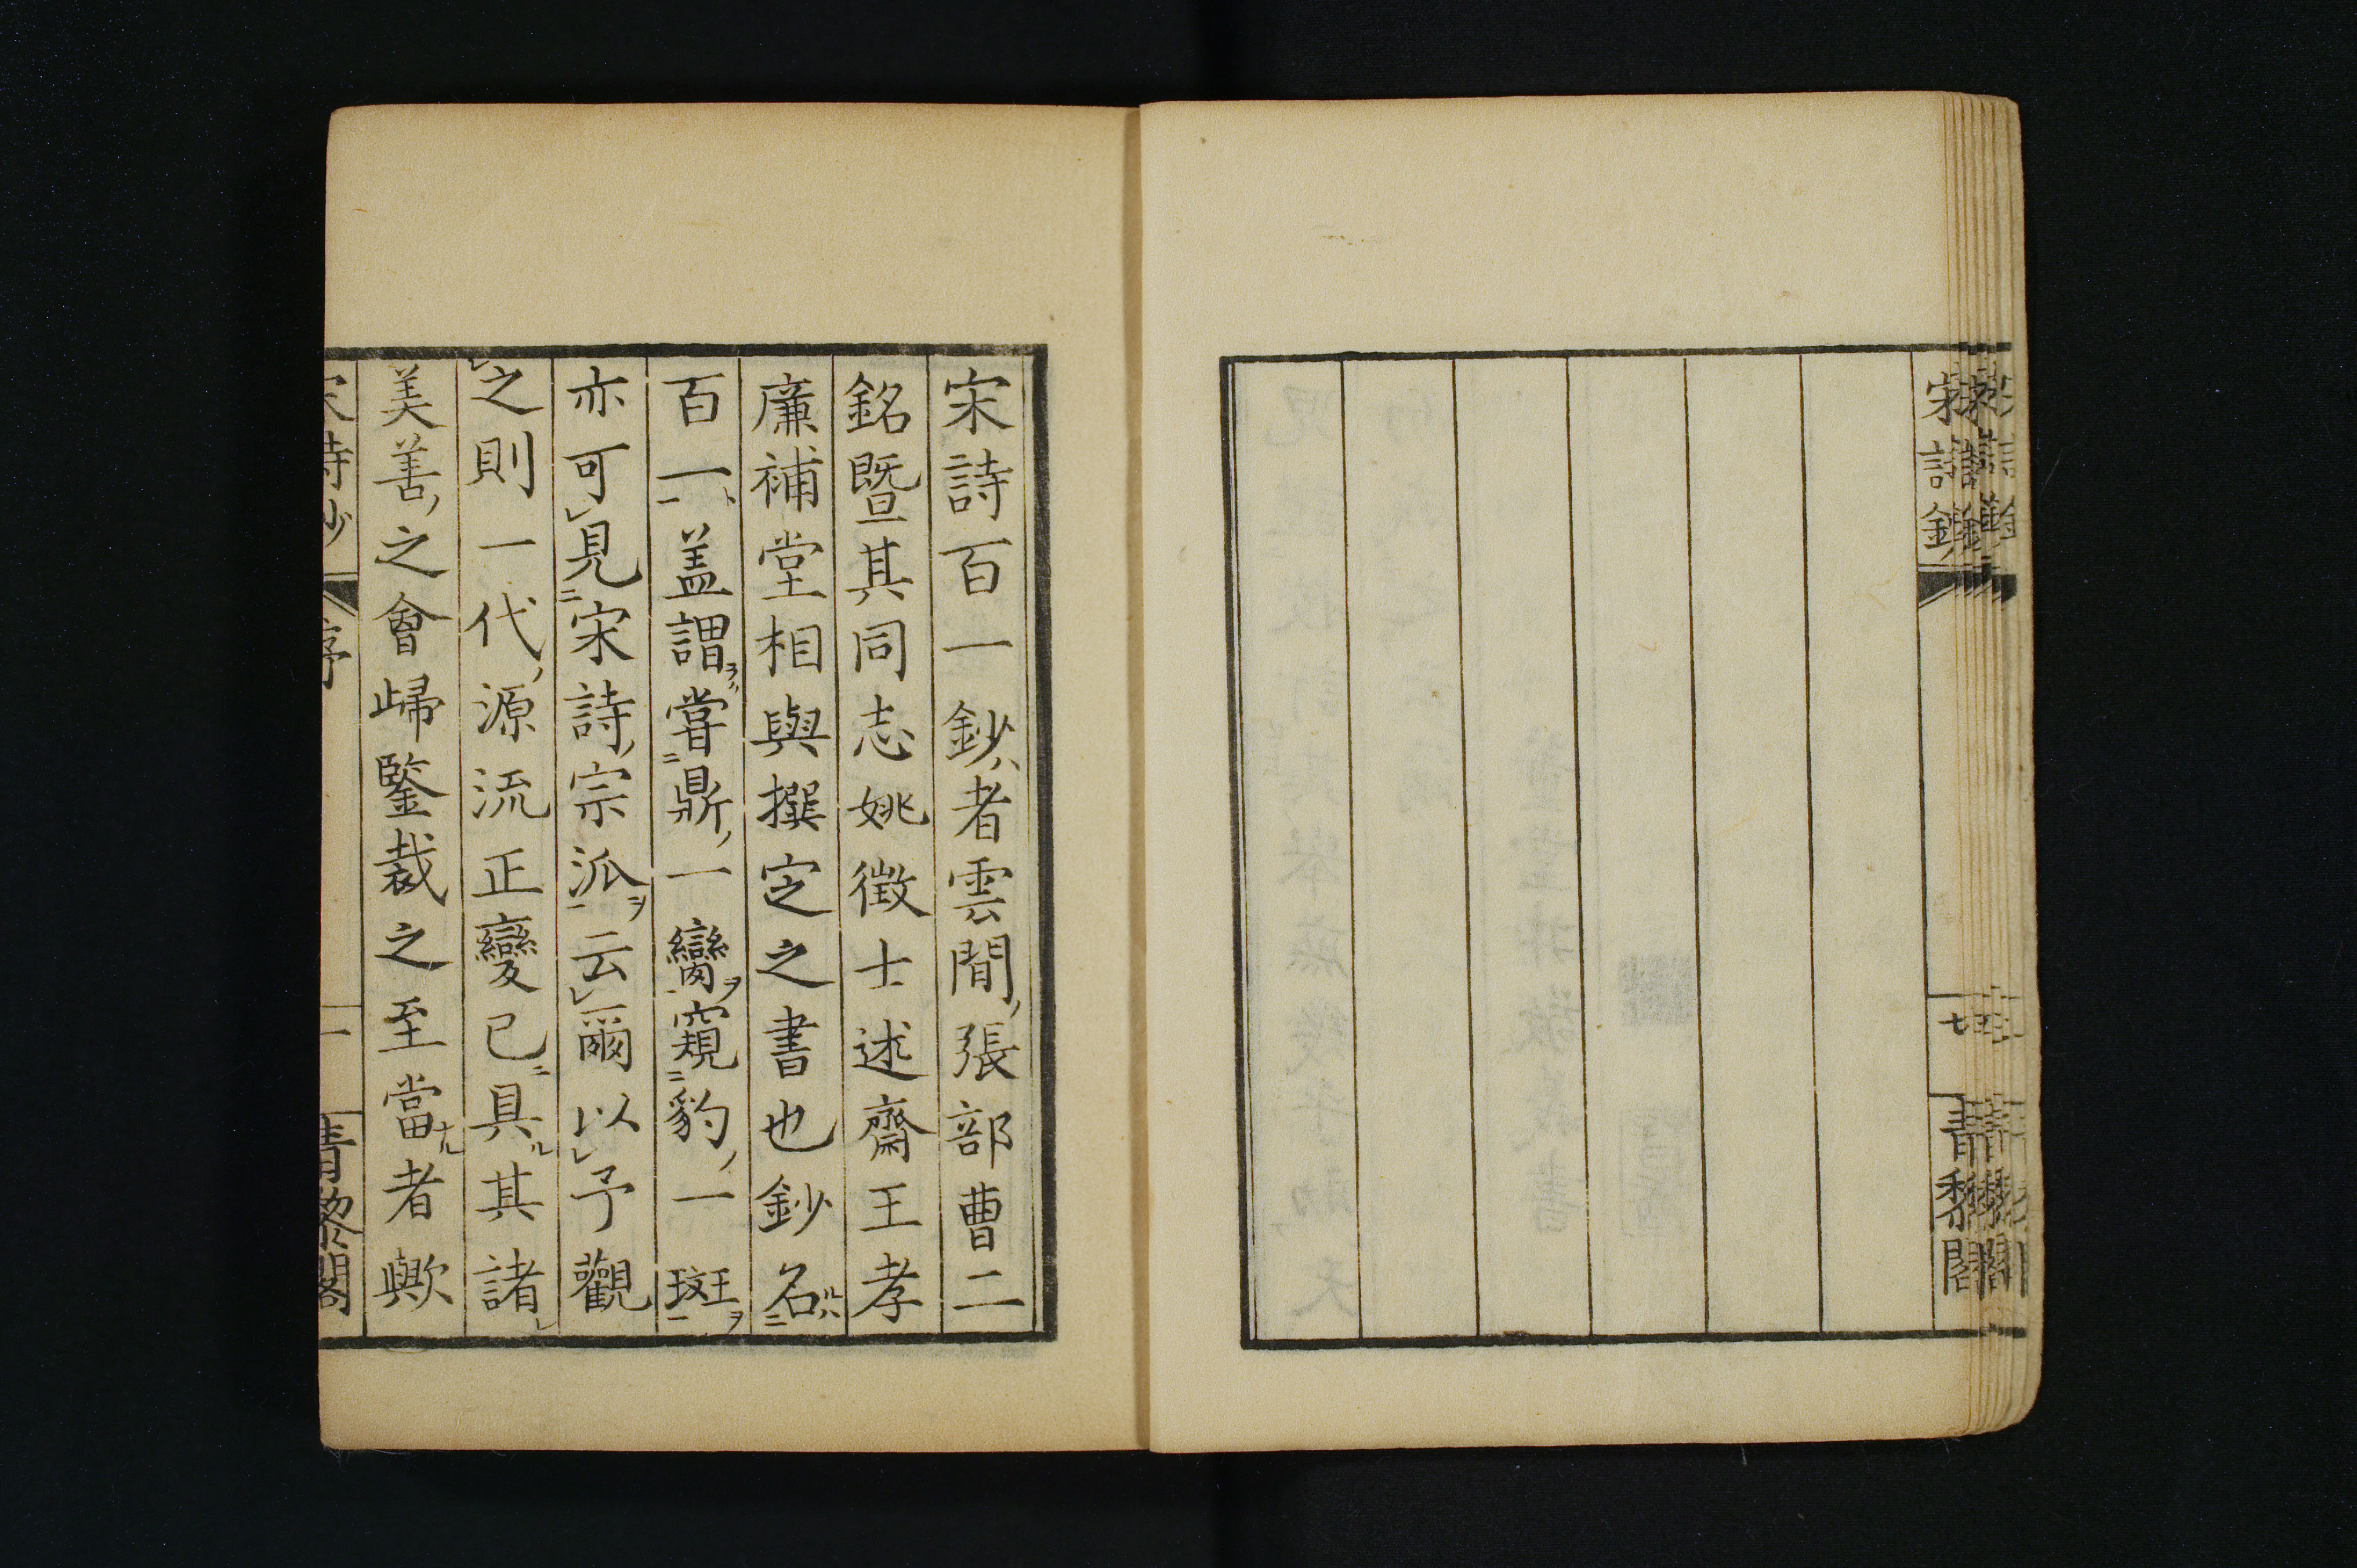 宋詩鈔
七
青黎閣
宋詩百一鈔者雲間張部曹二
銘暨其同志姚徵士述齋王孝
廉補堂相與撰定之書也鈔名
百一盖謂嘗鼎一臠窺豹一斑
亦可見宋詩宗派云爾以予觀
之則一代源流正變已具其諸
美善之會歸鑒裁之至當者歟
宋詩鈔
序
一
青黎閣